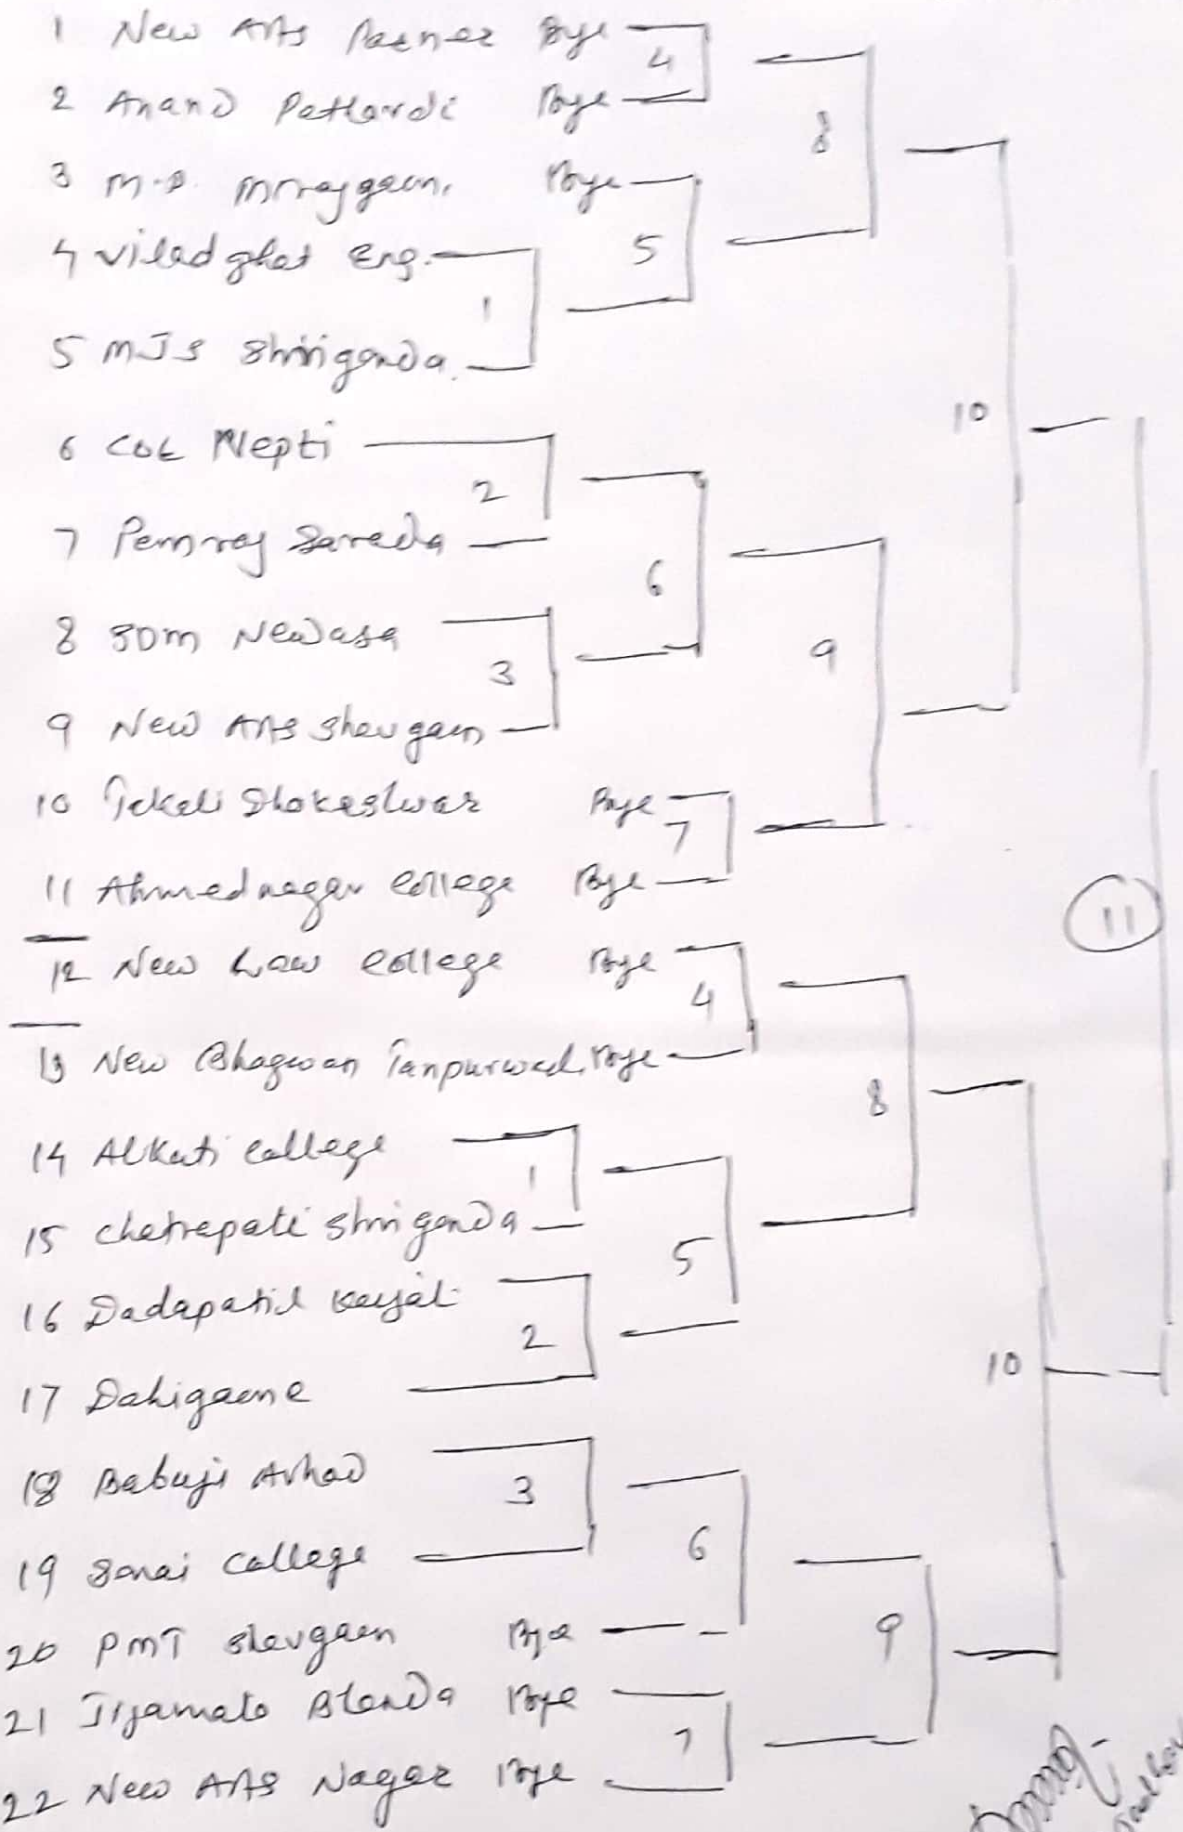 1 New Arts Parner Bye
4
2 Anand Pathardi Bye
8
3 M.D. Bye
5
4 Viladghat Eng.
1
5 MJS Shrigonda.
10
6 COE Nepti
2
7 Pemraj Sarada
6
8 SOM Newasa
3
9
9 New Arts Shevgaon
10 Takali Dhokeshwar Bye
7
11 Ahmednagar College Bye
11
12 New Law College Bye
4
13 New Bhagwan Bye
8
14 Alkuti College
1
15 Chatrapati Shrigonda
5
16 Dadapatil Karjat
2
10
17 Dahigaone
18 Babuji Avhad
3
6
19 Sonai College
20 PMT Shevgaon Bye
9
21 Jijamata Bhenda Bye
7
22 New Arts Nagar Bye